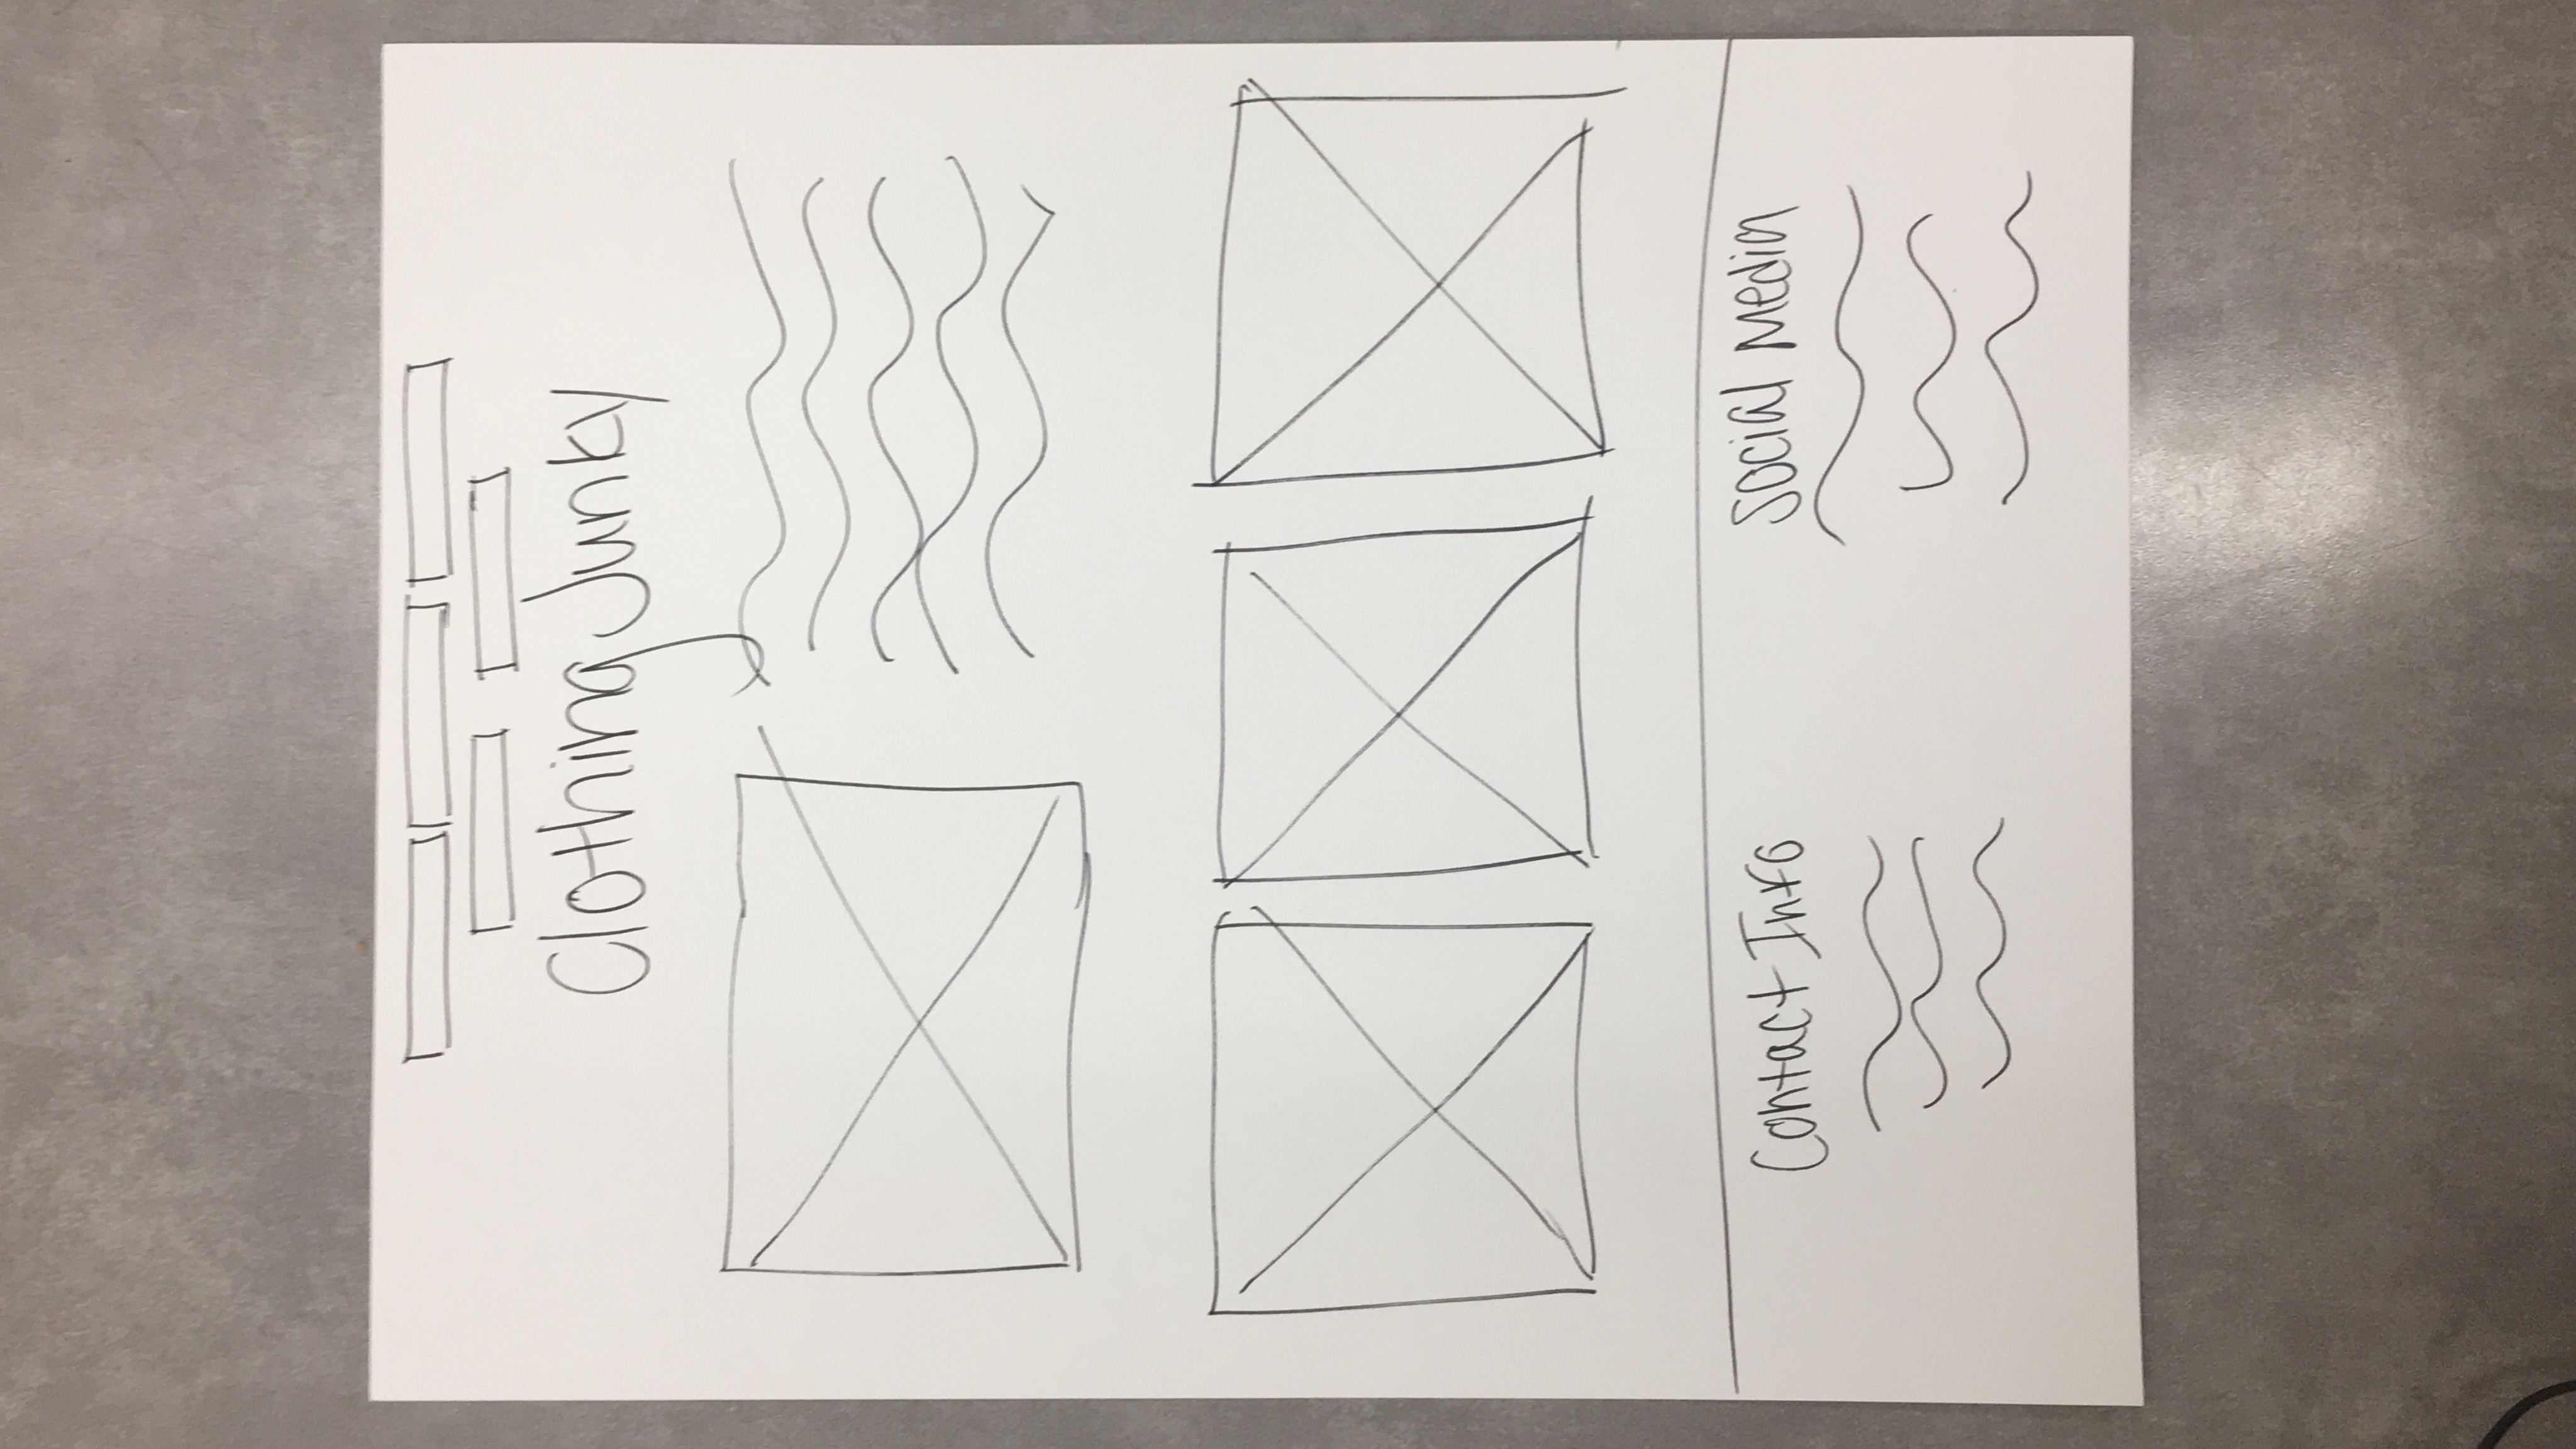 Clothing Junky
Contact Info
Social Media